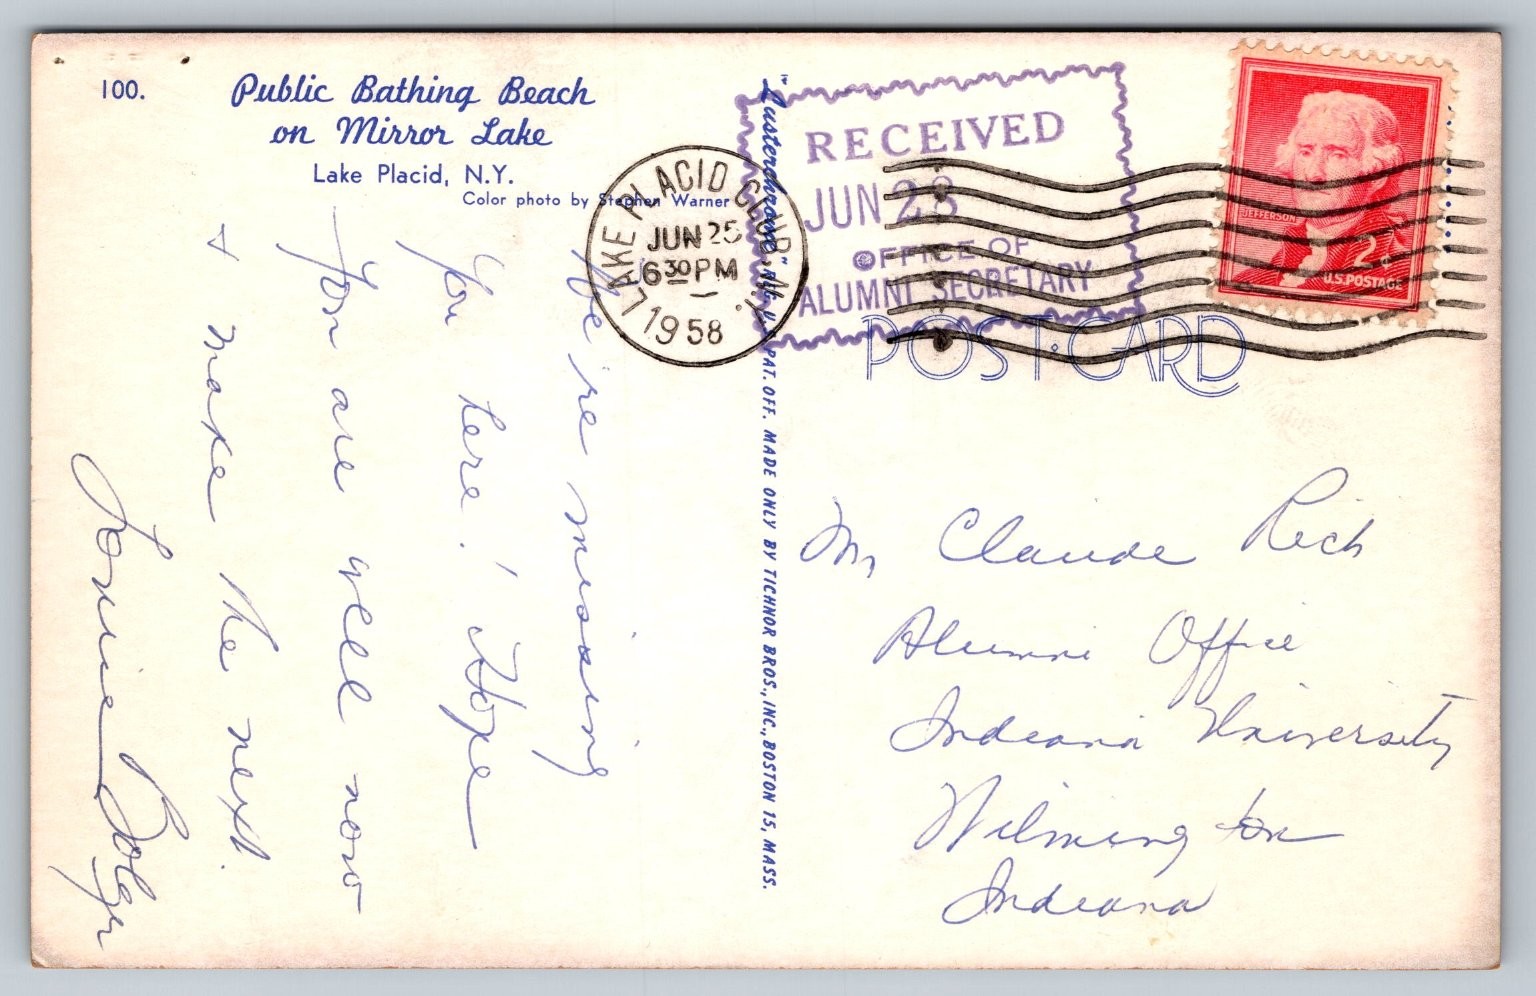 100.
Public Bathing Beach
on Mirror Lake
Lake Placid, N.Y.
Color photo by Stephen Warner
We're missing
you here! Hope
you are well now
& make the next.
Louise Bolger
"Lusterchrome" REG. U.S. PAT. OFF. MADE ONLY BY TICHNOR BROS., INC., BOSTON 15, MASS.
LAKE PLACID CLUB, N.Y.
JUN 25
6 30 PM
1958
RECEIVED
JUN 28
OFFICE OF
ALUMNI SECRETARY
JEFFERSON
2¢
U.S. POSTAGE
POST CARD
Mr Claude Rich
Alumni Office
Indiana University
Wilmington
Indiana